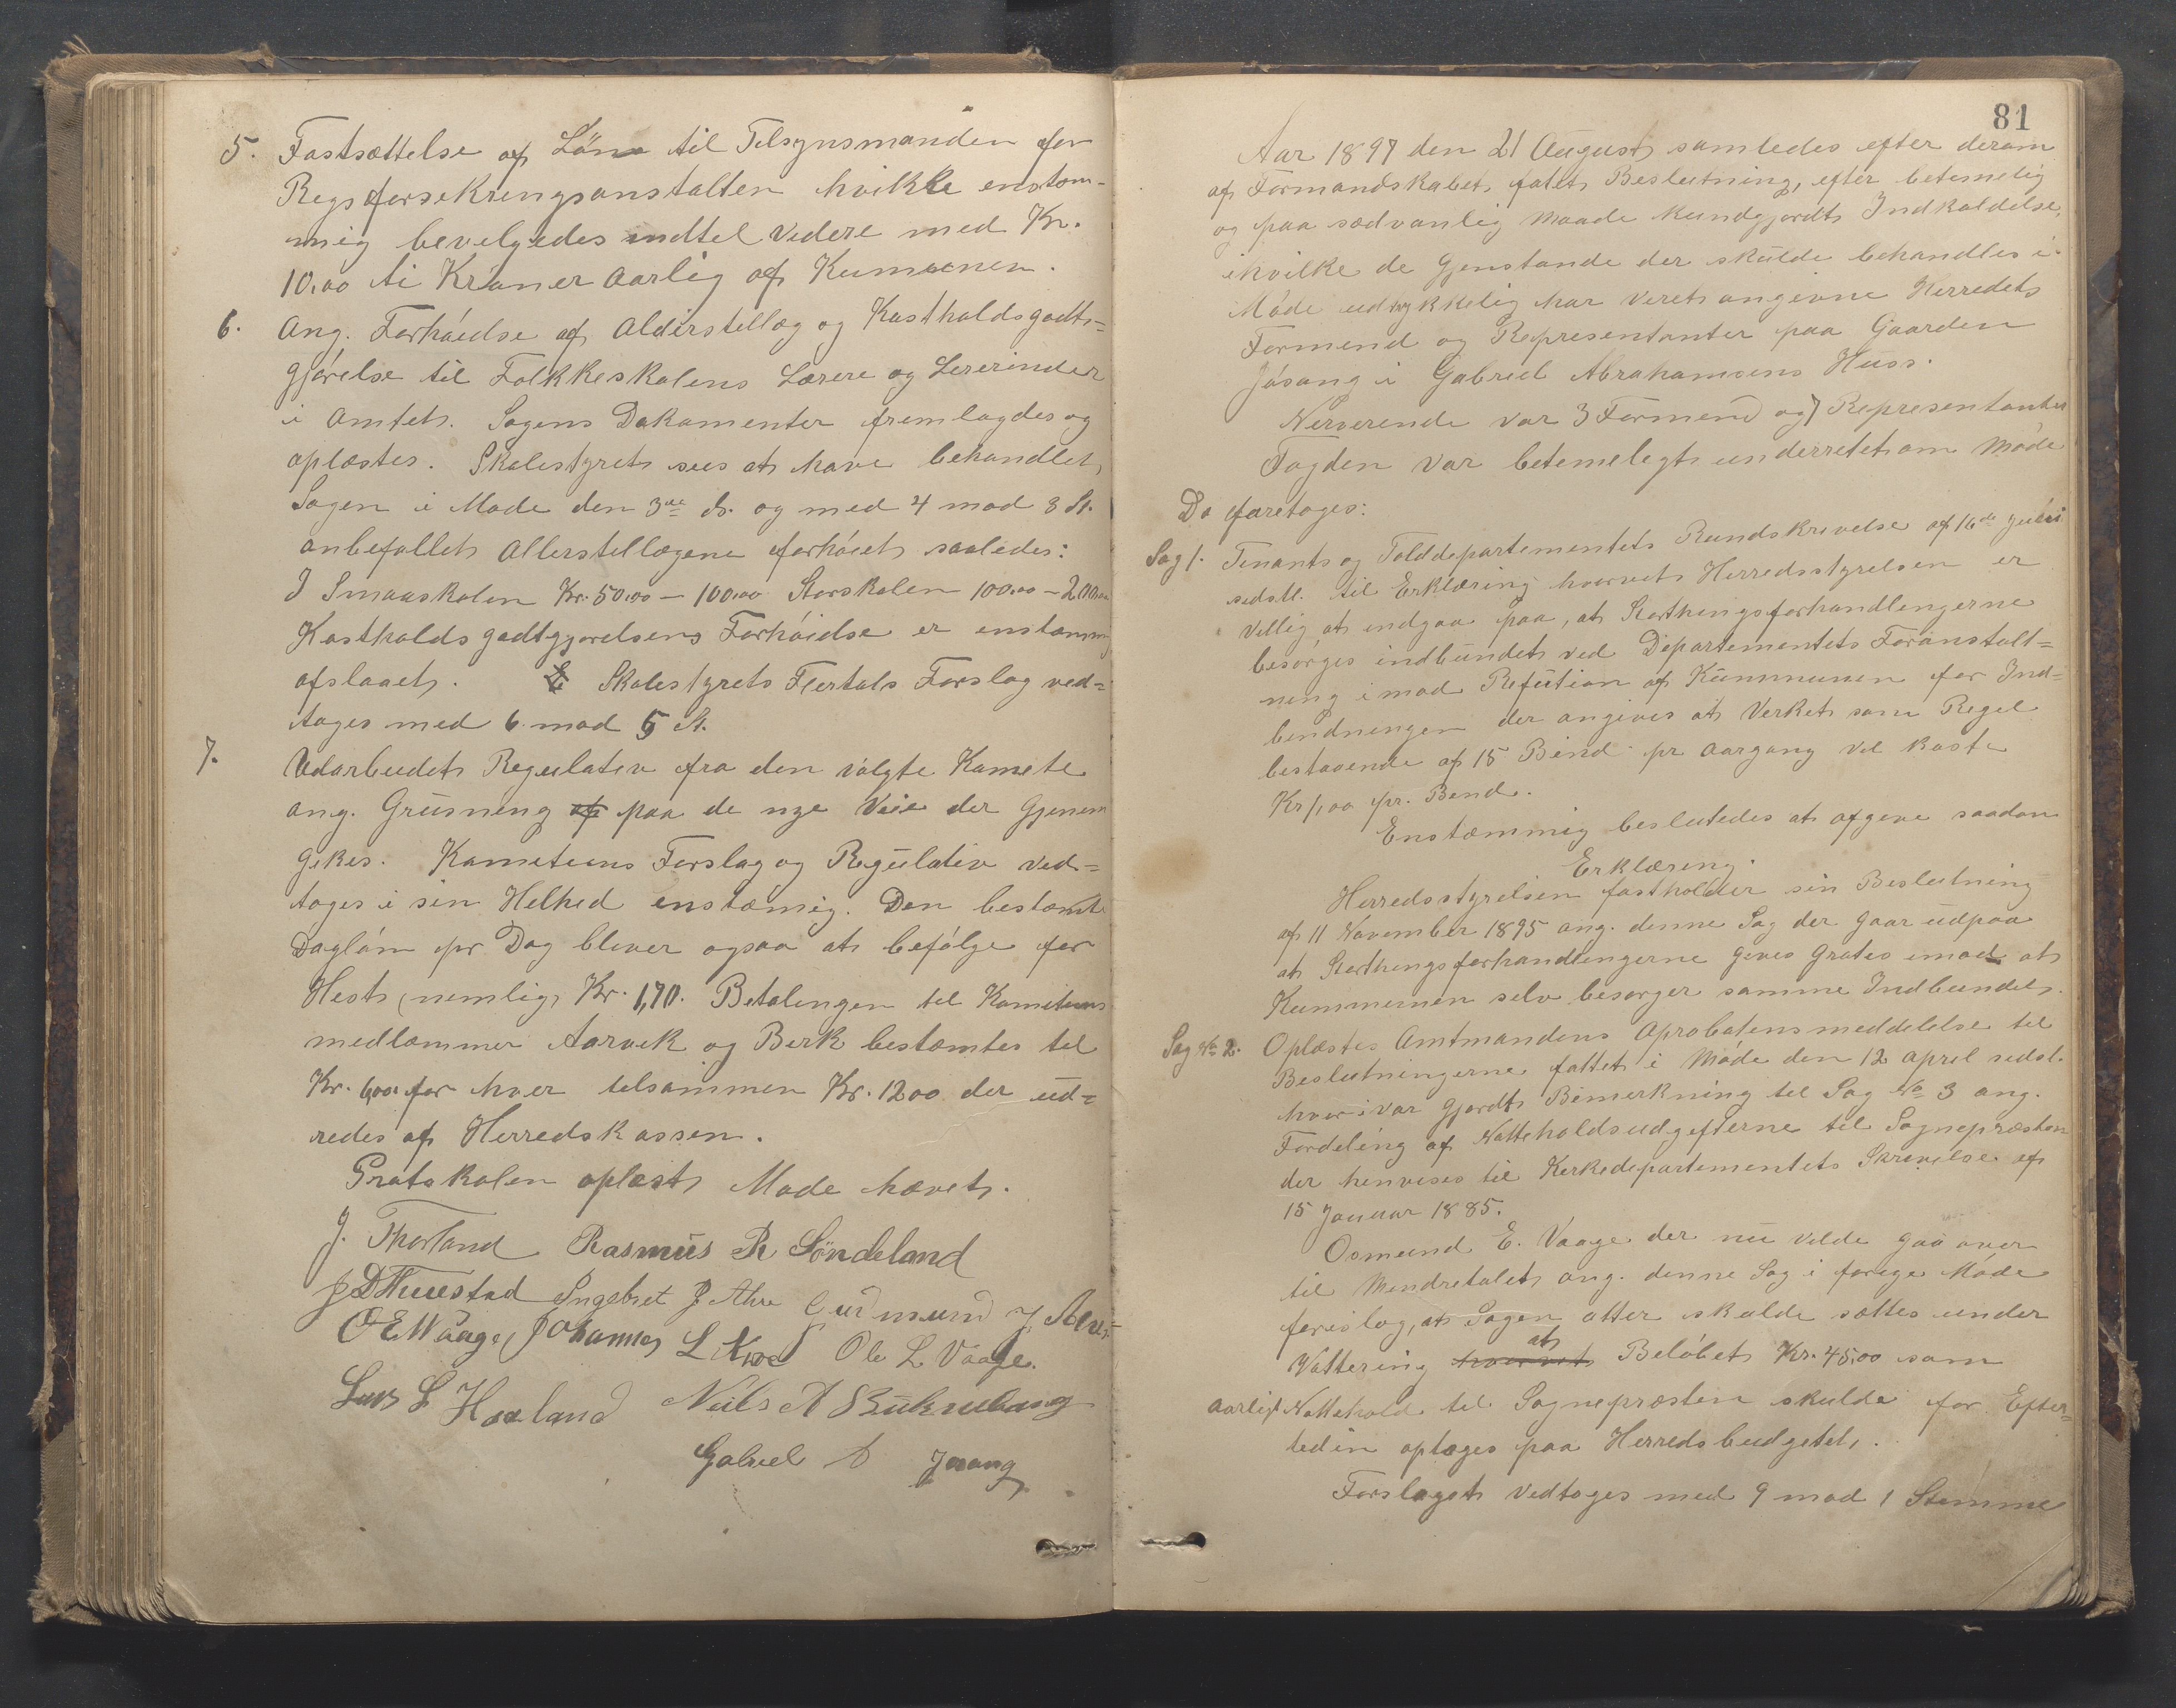 5. Fastsættelse af Löns til Tilsynsmanden for
Regsforsekringsanstalten hvikke enstom-
mig bevelgedes indtel videre med Kr.
10,00 ti Kroner aarlig af Kumunen.
6. Ang. Forhöidse af Alderstellæg og Kostholdsgodt-
gjörelse til Folkkeskolens Lærere og Lererinder
i Amtet. Sagens Dokumenter fremlagdes og
oplæstes. Skolestyret sees at have behandlet
Sagen i Möde den 3die ds. og med 4 mod 3 St.
anbefallet Allerstellægene forhöiet saaledes:
I Smaaskolen Kr. 50,00 – 100,00 Storskolen 100,00 – 200,00
Kostholdsgodtgjorelsens Forhöidse er enstommig
afslaaet. Skolestyrets Flertals Forslag ved=
tages med 6 mod 5 St.
7. Udarbeidet Regulativ fra den valgte Komete
ang. Grusning af paa de nye Veie der Gjenem
gikes. Kometeens Forslag og Regulativ ved=
tages i sin Helhed enstæmig. Den bestæmte
Daglöm pr Dag bliver ogsaa at befölge for
Hest, nemlig, Kr. 1,70. Betalingen til Kometeens
medlæmmer Aarvik og Birk bestæmtes tel
Kr. 6,00 for hver tilsammen Kr. 12,00 der ud=
redes af Herredskassen.
Protokolen oplæst Möde hævet.
J. Thorland Rasmus R Söndeland
J D Thuestad Ingebret J Ahre Gudmund J Alv
O E Waage Johannes L Ove Ole L Vaage.
Lars L Havland Niels A
Gabriel A Jösang
81
Aar 1897 den 21 August samledes efter derom
af Formandskabet fatet Beslutning, efter betemelig
og paa sædvanlig Maade kundgjordt Indkaldelse,
ihvilke de Gjenstande der skulde behandles i
Möde udtrykkelig har veret angivne Herredets
Formend og Representanter paa Gaarden
Jösang i Gabriel Abrahamsens Huss.
Nerverende var 3 Formend og 7 Representanter
Fogden var betemelegt underretet om Möde
Da foretoges:
Sag 1. Finants og Tolddepartementets Rundskrivelse af 16de Juni
sidstl. til Erklæring hvorvet Herredsstyrelsen er
villig at indgaa paa, at Storthingsforhandlingerne
besörges indbundet ved Departementets Foranstalt=
ning imod Refution af Kummunen for Ind=
bindningen der angives at Verket som Regel
bestaaende af 15 Bind pr Aargang vil koste
Kr 1,00 pr. Bind.
Enstæmmig besluttedes at afgive saadan
Erklæring.
Herredsstyrelsen fastholder sin Beslutning
af 11 November 1895 ang. denne Sag der gaar udpaa
at Storthingsforhandlingerne gives Gratis imod at
Kummunen selv besorger samme Indbundet.
Sag No 2. Oplæstes Amtmandens Aprobatensmeddelelse til
Beslutningerne fattet i Möde den 12 April sidstl.
hvori var gjordt Bemerkning tel Sag No 3 ang.
Fordeling af Natteholdsudgefterne til Sognepræsten
der henvises til Kerkedepartementets Skrivelse af
15 Januar 1885.
Osmund E. Vaage der nu vilde gaa over
til Mindretalet ang. denne Sag i forige Möde
foreslog, at Sagen atter skulde sættes under
Vottering hvorvet at Belöbet Kr. 45,00 som
aarligt Nattehold til Sognepræsten skulde for Efter=
tiden optages paa Herredsbudgetet.
Forslaget vedtoges med 9 mod 1 Stemme